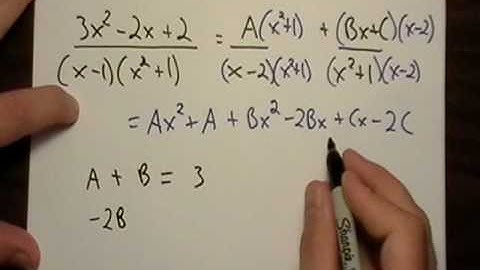 3x² - 2x + 2 = A(x²+1) + (Bx+C)(x-2)
(x-1)(x²+1) (x-2)(x²+1) (x²+1)(x-2)
= Ax² + A + Bx² - 2Bx + Cx - 2C
A + B = 3
-2B
Sharpie